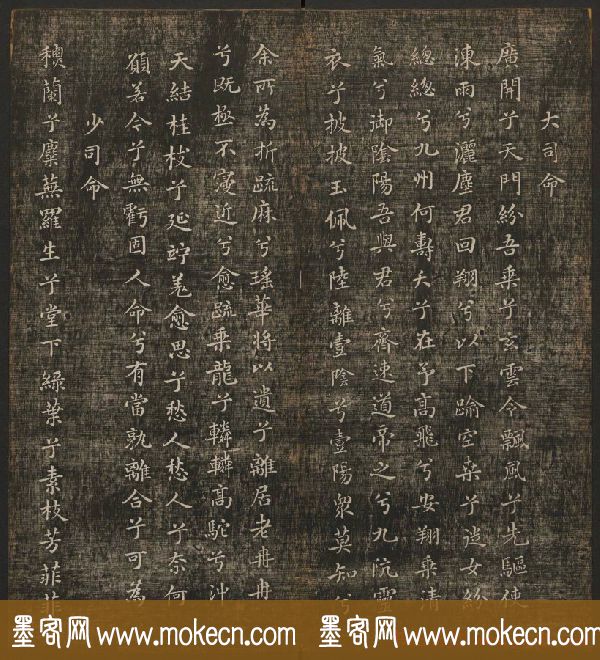 大司命
廣開兮天門紛吾乘兮玄雲令飄風兮先驅使
涷雨兮灑塵君回翔兮以下踰空桑兮從女紛
總總兮九州何壽夭兮在予高飛兮安翔乘清
氣兮御陰陽吾與君兮齊速道帝之兮九阬靈
衣兮披披玉佩兮陸離壹陰兮壹陽衆莫知兮
余所為折疏麻兮瑤華將以遺兮離居老冉冉
兮既極不寖近兮愈疏乘龍兮轔轔高駝兮沖
天結桂枝兮延竚羌愈思兮愁人愁人兮奈何
願若今兮無虧固人命兮有當孰離合兮可為
少司命
穠蘭兮麋蕪羅生兮堂下綠葉兮素枝芳菲菲
墨客网 www.mokecn.com 墨客网 www.mokecn.com